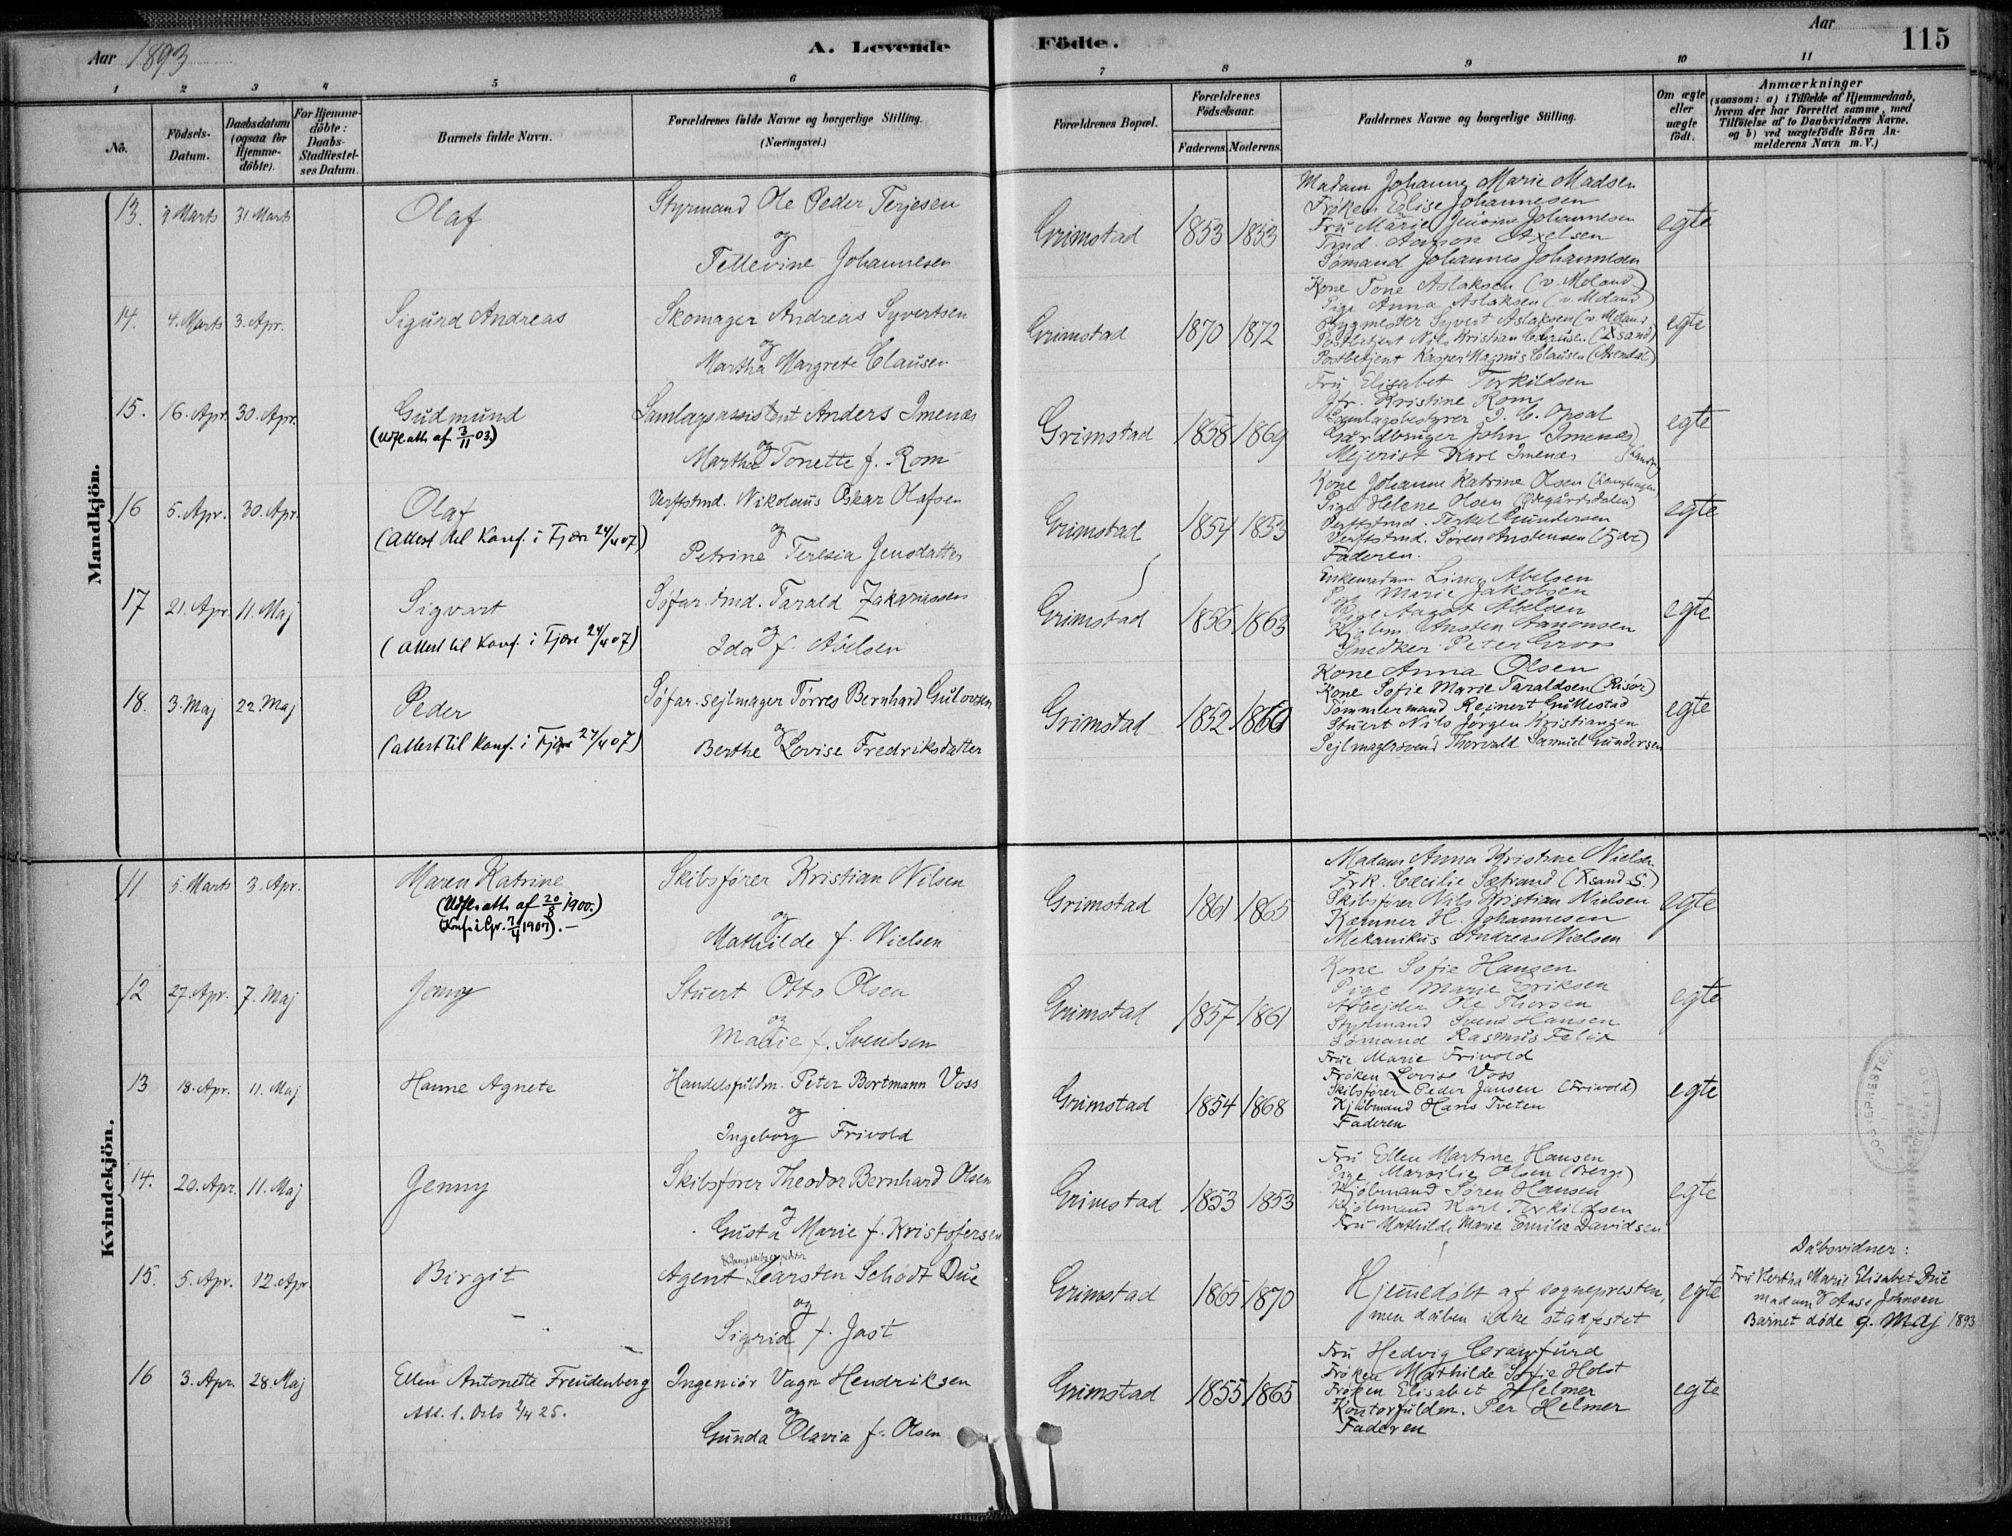 Aar 1893
A. Levende Födte.
Aar
115
1 2 3 4 5 6 7 8 9 10 11
No.
Födsels-Datum.
Daabsdatum (ogsaa for Hjemme-döbte).
For Hjemme-döbte: Daabs-Stadfæstel-ses Datum.
Barnets fulde Navn.
Forældrenes fulde Navne og borgerlige Stilling. (Næringsvei.)
Forældrenes Bopæl.
Forældrenes Födselsaar.
Faderens. Moderens.
Faddernes Navne og borgerlige Stilling.
Om ægte eller uægte födt.
Anmærkninger
(saasom: a) i Tilfælde af Hjemmedaab, hvem der har forrettet samme, med Tilföielse af to Daabsvidners Navne. og b) ved uægtefödte Börn An-melderens Navn m. V.)
Mandkjön.
13. 9 Marts 31 Marts
Olaf
Styrmand Ole Peder Terjesen
og
Tellevine Johannesen
Grimstad 1853 1853
Madam Johanne Marie Madsen
Frøken Elise Johannesen
Fru Marie Johannesen
Tmd. Axelsen
Sømand Johannes Johannesen
egte
14. 4. Marts 3. Apr.
Sigurd Andreas
Skomager Andreas Syvertsen
og
Martha Margrete Clausen
Grimstad 1870 1872
Kone Tone Aslaksen (v. Moland)
Pige Anna Aslaksen (v. Moland)
Bygmester Syvert Aslaksen (v. Moland
Postbetjent Nils Kristian Clausen (Xsand)
Postbetjent Kasper Magnus Clausen (Arendal)
egte
15. 16. Apr. 30. Apr.
Gudmund
(Udfl. att. af 3/11 03.)
Samlagsassistent Anders Imenæs
og
Martha Tonette f. Rom
Grimstad 1858 1869
Fru Elisabet Terkildsen
Jfr. Kristine Rom
Samlagsbestyrer J. C. Opsal
Gårdbruger John Imenæs
Mejerist Karl Imenæs
egte
16 5. Apr. 30. Apr.
Olaf
(Attest til Konf. i Fjære 24/4 07)
Verftstmd. Nikolaus Oskar Olafsen
og
Petrine Teresia Jensdatter
Grimstad 1854 1853
Kone Johanne Katrine Olsen
Pige Helene Olsen (Ødegårdsdalen)
Verftstmd. Terkel Gundersen
Verftstmd. Søren Anstensen (Fjære)
Faderen.
egte
17 21. Apr 11. Maj
Sigvart
(Attest til Konf. i Fjære 24/4 07)
Søfar. tmd. Tarald Zakariassen
og
Ida f. Abelsen
Grimstad 1856 1863
Enkemadam Lina Abelsen
Pige Marie Jakobsen
Pige Aagot Abelsen
Kjøbm. Ansten Aanonsen
Snedker Peter Groos
egte
18. 3. Maj 22. Maj
Peder
(Attest til Konf. i Fjære 24/4 07)
Søfar. sejlmager Tørres Bernhard Gulovsen
og
Berthe Lovise Fredriksdatter
Grimstad 1852 1860
Kone Anna Olsen
Kone Sofie Marie Taraldsen (Risør)
Tømmermand Reinert Gullestad
Stuert Nils Jørgen Kristiansen
Sejlmagersvend Thorvald Samuel Gundersen
egte
Kvindekjön.
11. 5. Marts 3. Apr.
Maren Katrine
(Udfl. att. af 20/8 1900.)
(Konf. i Gr. 7/4 1907). –
Skibsfører Kristian Nilsen
og
Mathilde f. Nielsen
Grimstad 1861 1865
Madam Anna Kristine Nielsen
Frk. Cecilie Sætrand (Xsand S.)
Skibsfører Nils Kristian Nielsen
Kæmner H. Johannesen
Mekanikus Andreas Nielsen
egte
12 27. Apr. 7. Maj
Jenny
Stuert Otto Olsen
og
Marie f. Svendsen
Grimstad 1857 1861
Kone Sofie Hansen
Pige Marie Eriksen
Arbejder Ole Thorsen
Styrmand Svend Hansen
Sømand Rasmus Felix
egte
13 18. Apr. 11. Maj
Hanne Agnete
Handelsfuldm. Peter Bortmann Voss
og
Ingeborg Frivold
Grimstad 1854 1868
Frue Marie Frivold
Frøken Lovise Voss
Skibsfører Peder Jansen (Frivold)
Kjøbmand Hans Tveten
Faderen
egte
14. 20. Apr. 11. Maj
Jenny
Skibsfører Theodor Bernhard Olsen
og
Gusta Marie f. Kristofersen
Grimstad 1853 1853
Fru Ellen Martine Hansen
Pige Marsilie Olsen (Berge)
Kjøbmand Søren Hansen
Kjøbmand Karl Terkildsen
Fru Mathilde Marie Emilie Davidsen
egte
15. 5. Apr. 12. Apr
Birgit
Agent Carsten Schödt Due
og
Sigrid f. Jast
Grimstad 1865 1870
Hjemmedøbt af sognepresten,
men dåben ikke stadfestet
egte
Dåbsvidner:
Fru Hertha Marie Elisabet Due
madam Aase Johnsen
Barnet døde 9. Maj 1893
16 3. Apr. 28. Maj
Ellen Antonette Freudenberg
Att. t. Oslo 2/4 25.
Ingeniør Vagn Hendriksen
og
Gunda Olavia f. Olsen
Grimstad 1855 1865
Fru Hedvig Crawfurd
Frøken Mathilde Sofie Holst
Frøken Elisabet Helmer
Kontorfuldm. Per Helmer
Faderen
egte